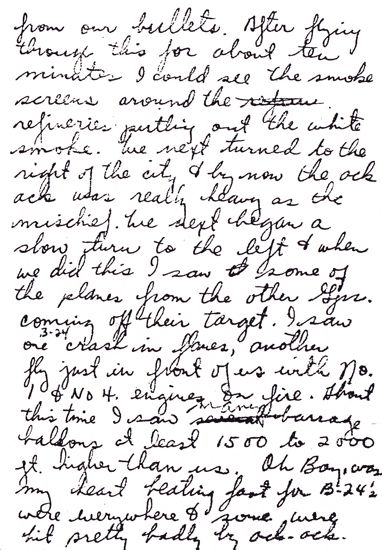 from our bullets. After flying
through this for about ten
minutes I could see the smoke
screens around the
refineries putting out the white
smoke. We next turned to the
right of the city & by now the ack
ack was really heavy as the
mischief. We next began a
slow turn to the left & when
we did this I saw some of
the planes from the other Grs.
coming off their target. I saw
3-24
one crash in flames, another
fly just in front of us with No.
1 & No 4. engines on fire. About
many
this time I saw several barrage
baloons at least 1500 to 2000
ft. higher than us. Oh Boy, was
my heart beating fast for B-24's
were everywhere & some were
hit pretty badly by ack-ack.